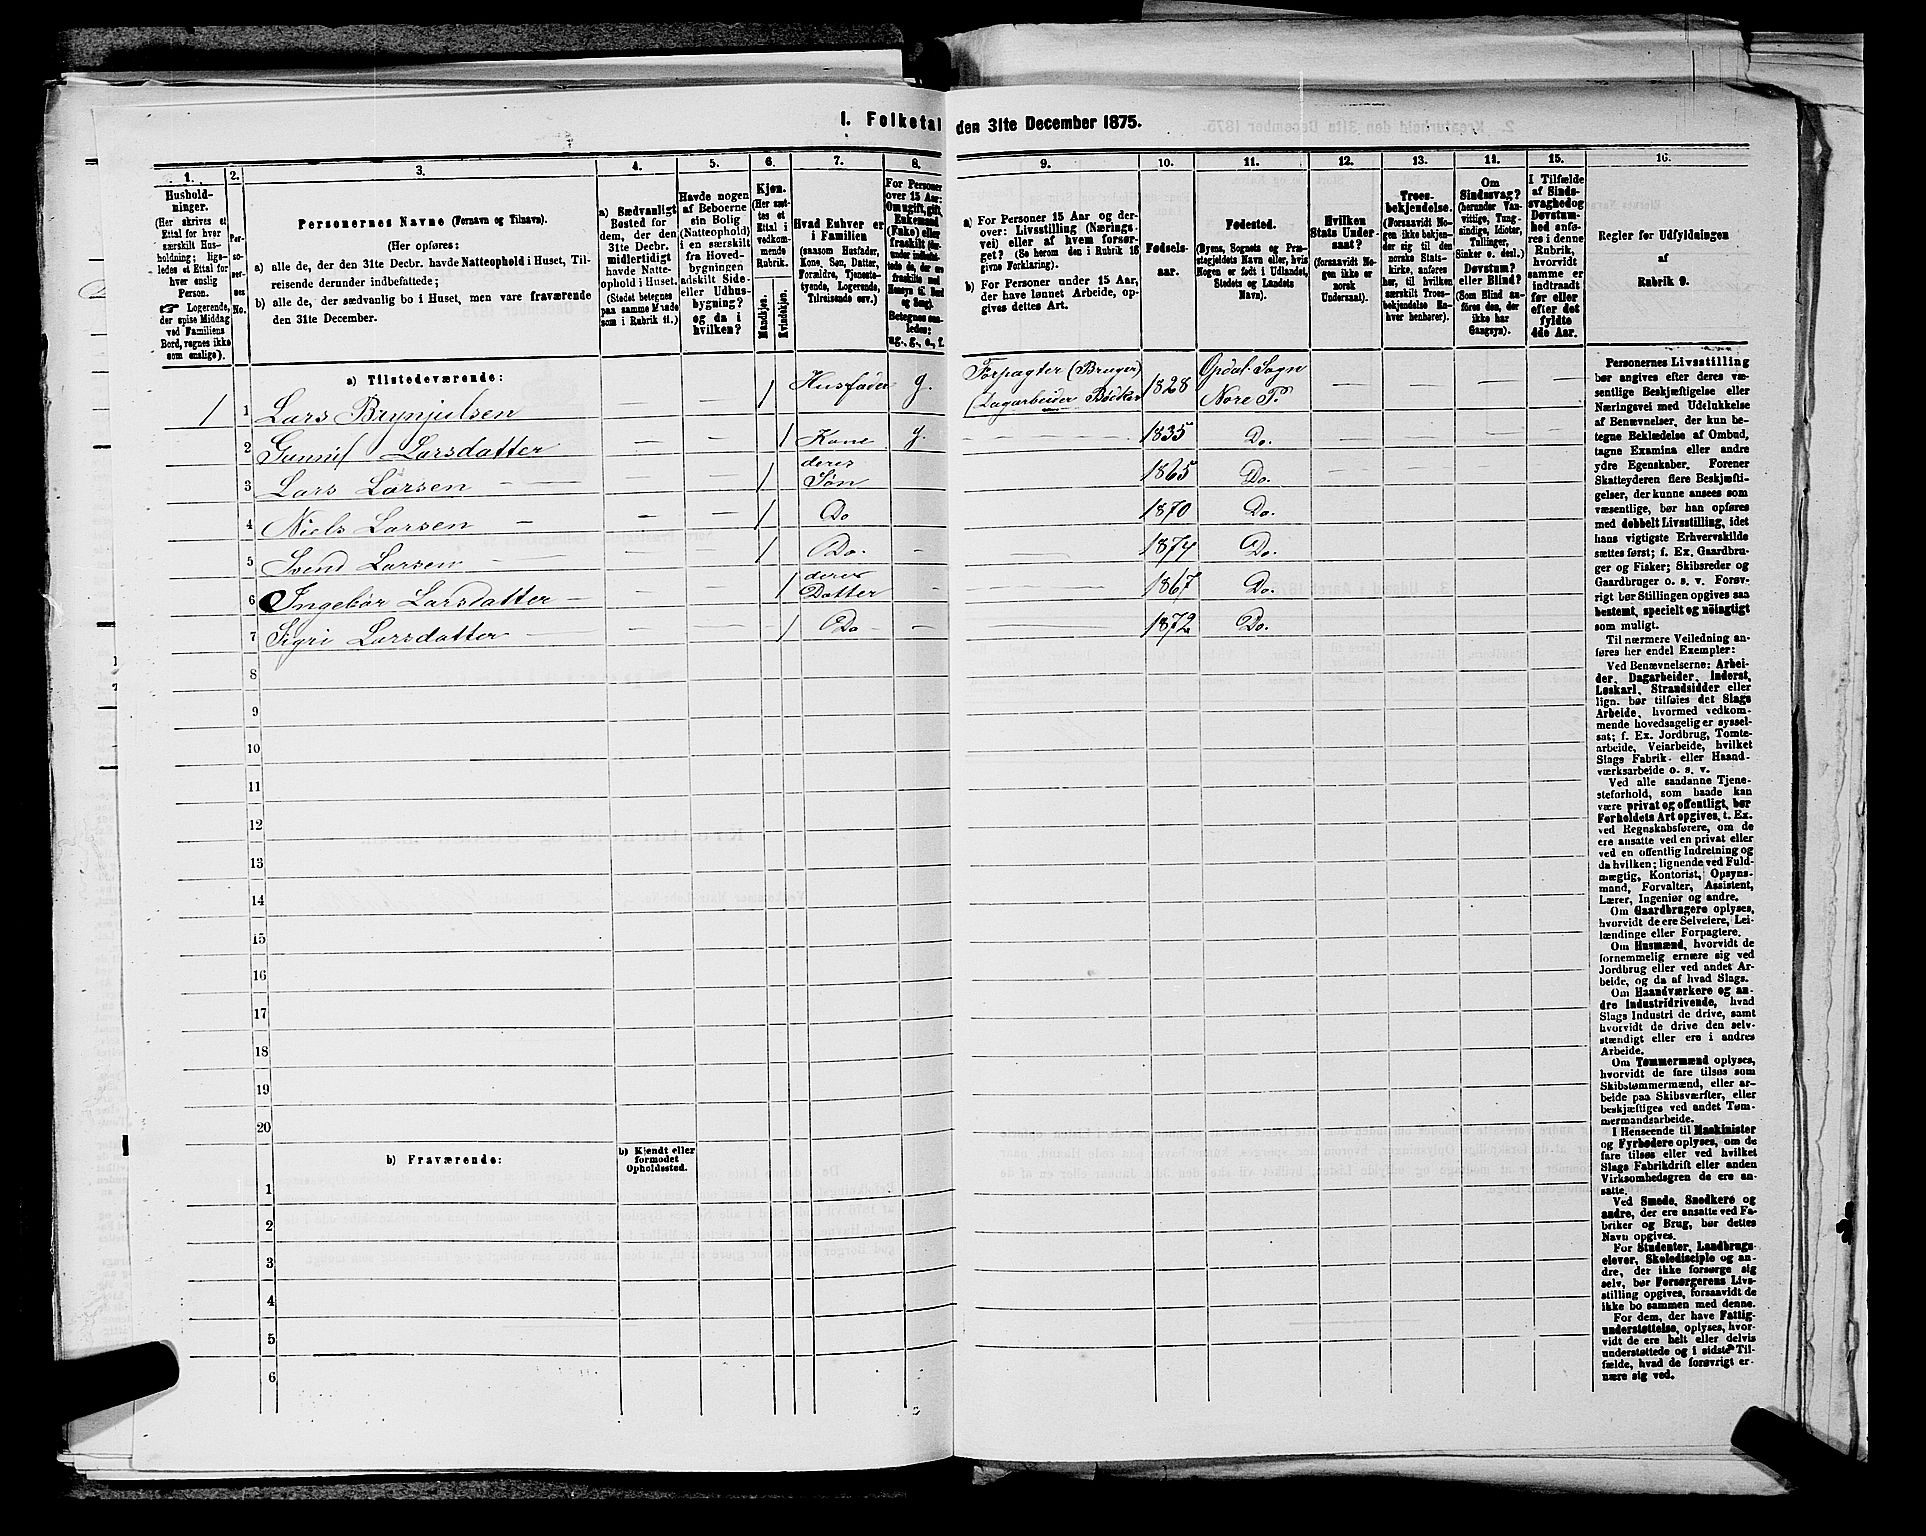 I. Folketal den 31te December 1875.
1. 2. 3. 4. 5. 6. 7. 8. 9. 10. 11. 12. 13. 14. 15. 16.
Hushold-
ninger.
(Her skrives et
Ettal for hver
særskilt Hus-
holdning; lige-
ledes et Ettal for
hver enslig
Person.
☞ Logerende,
der spise Middag
ved Familiens
Bord, regnes ikke
som enslige).
Per-
so-
ner-
nes
No.
Personernes Navne (Fornavn og Tilnavn).
(Her opføres:
a) alle de, der den 31te Decbr. havde Natteophold i Huset, Til-
reisende derunder indbefattede;
b) alle de, der sædvanlig bo i Huset, men vare fraværende
den 31te December.
a) Sædvanligt
Bosted for
dem, der den
31te Decbr.
midlertidigt
havde Natte-
ophold i Huset.
(Stedet betegnes
paa samme Maade
som i Rubrik 11.)
Havde nogen
af Beboerne
sin Bolig
(Natteophold)
i en særskilt
fra Hoved-
bygningen
adskilt Side-
eller Udhus-
bygning?
og da i
hvilken?
Kjøn.
(Her sæt-
tes et
Ettal i
vedkom-
mende
Rubrik.
Mandkjøn.
Kvindekjøn.
Hvad Enhver er
i Familien
(saasom Husfader,
Kone, Søn, Datter,
Forældre, Tjeneste-
tyende, Logerende,
Tilreisende osv.)
For Personer
over 15 Aar:
Om ugift, gift,
Enkemand
(Enke) eller
fraskilt
Betegnes saa-
ledes:
ug., g., e., f.
a) For Personer 15 Aar og der-
over: Livsstilling (Nærings-
vei) eller af hvem forsør-
get? (Se herom den i Rubrik 16
givne Forklaring).
b) For Personer under 15 Aar,
der have lønnet Arbeide, op-
gives dettes Art.
Fødsels-
aar.
Fødested.
(Byens, Sognets og Præ-
stegjeldets Navn eller, hvis
Nogen er født i Udlandet,
Stedets og Landets
Navn).
Hvilken
Stats Under-
saat?
(forsaavidt No-
gen ikke er
norsk
Undersaat).
Troes-
bekjendelse.
(Forsaavidt No-
gen ikke bekjen-
der sig til den
norske Stats-
kirke, anføres
her, til hvilken
særskilt Troes-
bekjendelse En-
hver henhører).
Om
Sindssvag?
(herunder Van-
vittige, Tung-
sindige, Idioter,
Tullinger,
Sinker o. desl.)
Døvstum?
eller Blind?
(Som Blind an-
føres den, der
ikke har
Gangsyn).
I Tilfælde
af Sinds-
svaghed og
Døvstum-
hed anfø-
res i denne
Rubrik,
hvorvidt
samme er
indtraadt
før eller
efter det
fyldte
4de Aar.
Regler for Udfyldningen
af
Rubrik 9.
a) Tilstedeværende:
1 1 Lars Brynjulsen — — 1 Husfader g. Forpagter (Bruger) (Dagarbeider Bödker 1828 Opdal Sogn Nore P. — — — —
2 Gunnil Larsdatter — — 1 Kone g. — 1835 Do. — — — —
3 Lars Larsen — — 1 deres Søn — — 1865 Do. — — — —
4 Niels Larsen — — 1 Do — — 1870 Do.
5 Svend Larsen — — 1 Do. — — 1874 Do.
6 Ingebor Larsdatter — — 1 deres Datter — — 1867 Do.
7 Sigri Larsdatter — — 1 Do — — — 1872 Do.
8
9
10
11
12
13
14
15
16
17
18
19
20
b) Fraværende:
b) Kjendt eller
formodet
Opholdssted.
1
2
3
4
5
6
Personernes Livsstilling
bør angives efter deres væ-
sentlige Beskjæftigelse eller
Næringsvei med Udelukkelse
af Benævnelser, der kun be-
tegne Beklædelse af Ombud,
tagne Examina eller andre
ydre Egenskaber. Forener
Skatteyderen flere Beskjæfti-
gelser, der kunne ansees som
væsentlige, bør han opføres
med dobbelt Livsstilling, idet
hans vigtigste Erhvervskilde
sættes først; f. Ex. Gaardbru-
ger og Fisker; Skibsreder og
Gaardbruger o. s. v. Forøv-
rigt bør Stillingen opgives saa
bestemt, specielt og nöiagtigt
som muligt.
Til nærmere Veiledning an-
føres her endel Exempler:
Ved Benævnelserne: Arbei-
der, Dagarbeider, Inderst,
Løskarl, Strandsidder eller
lign. bør tilføies det Slags
Arbeide, hvormed vedkom-
mende hovedsagelig er syssel-
sat; f. Ex. Jordbrug, Tomte-
arbeide, Veiarbeide, hvilket
Slags Fabrik- eller Haand-
værksarbeide o. s. v.
Ved alle saadanne Tjene-
steforhold, som baade kan
være privat og offentligt, bør
Forholdets Art opgives, t. Ex.
ved Regnskabsførere, om de
ere ansatte ved en privat eller
ved en offentlig Indretning og
da hvilken; lignende ved Fuld-
mægtig, Kontorist, Opsyns-
mand, Forvalter, Assistent,
Lærer, Ingeniør og andre.
Om Gaardbrugere oplyses,
hvorvidt de ere Selveiere, Lei-
lændinge eller Forpagtere.
Om Husmænd, hvorvidt de
fornemmelig ernære sig ved
Jordbrug eller ved andet Ar-
beide, og da af hvad Slags.
Om Haandværkere og an-
dre Industridrivende, hvad
Slags Industri de drive, samt
hvorvidt de drive den selv-
stændigt eller ere i andres
Arbeide.
Om Tømmermænd oplyses,
hvorvidt de fare tilsøs som
Skibstømmermænd, eller ar-
beide paa Skibsværfter, eller
beskjæftiges ved andet Tøm-
mermandsarbeide.
I Henseende til Maskinister
og Fyrbødere oplyses, om de
fare tilsøs eller ved hvilket
Slags Fabrikdrift eller anden
Virksomhedsgren de ere an-
satte.
Ved Smede, Snedkere og
andre, der ere ansatte ved Fa-
briker og Brug, bør dettes
Navn opgives.
For Studenter, Landbrugs-
elever, Skoledisciple og an-
dre, der ikke forsørge sig
selv, bør Forsørgerens Livs-
stilling opgives, forsaavidt de
ikke bo sammen med denne.
For dem, der have Fattig-
understøttelse, oplyses, hvor-
vidt de ere helt eller delvis
understøttede og i sidste Til-
fælde, hvad de forøvrigt er-
nære sig ved.